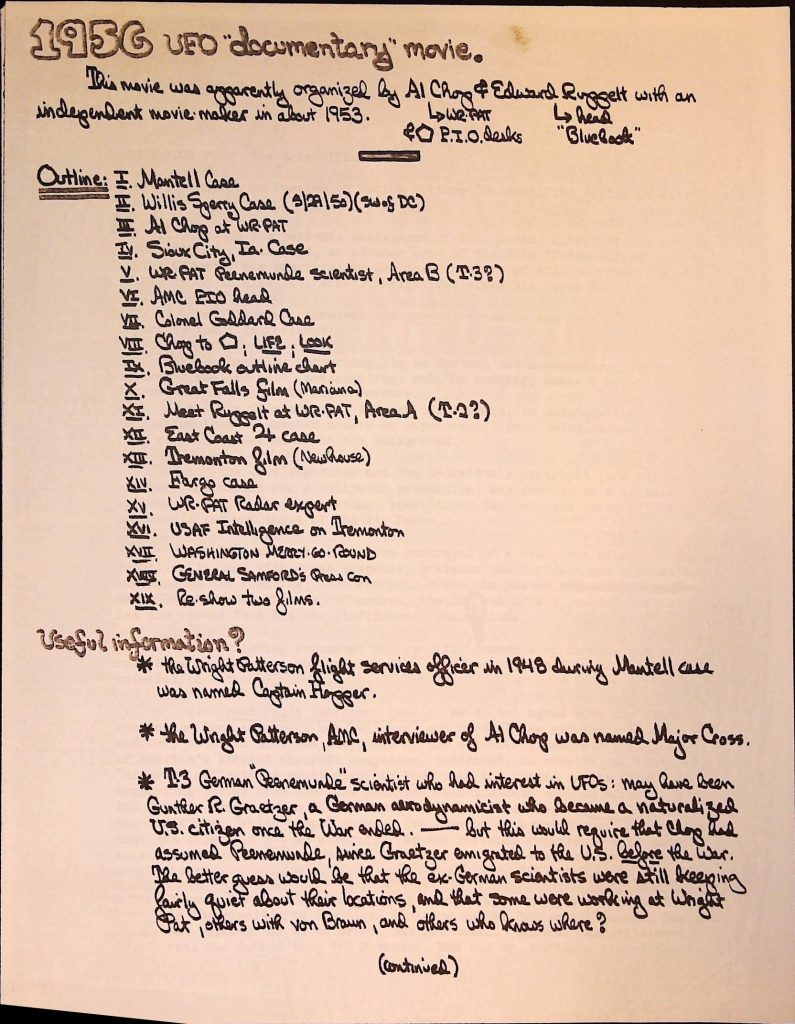 1956 UFO "documentary" movie.
This movie was apparently organized by Al Chop & Edward Ruppelt with an
independent movie-maker in about 1953. ↳ WR-PAT ↳ head
& ⬠ P.I.O. desks "Bluebook"
Outline: I. Mantell Case
II. Willis Sperry Case (5/29/50) (SW of DC)
III. Al Chop at WR-PAT
IV. Sioux City, Ia. Case
V. WR-PAT Peenemunde scientist, Area B (T-3?)
VI. AMC PIO head
VII. Colonel Goddard Case
VIII. Chop to ⬠; LIFE; LOOK
IX. Bluebook outline chart
X. Great Falls film (Mariana)
XI. Meet Ruppelt at WR-PAT, Area A (T-2?)
XII. East Coast 24 case
XIII. Tremonton film (Newhouse)
XIV. Fargo case
XV. WR-PAT Radar expert
XVI. USAF Intelligence on Tremonton
XVII. WASHINGTON MERRY-GO-ROUND
XVIII. GENERAL SAMFORD'S Press Con
XIX. Re-show two films.
Useful information?
* the Wright Patterson flight services officer in 1948 during Mantell case
was named Captain Hopper.
* the Wright Patterson, AMC, interviewer of Al Chop was named Major Cross.
* T-3 German "Peenemunde" scientist who had interest in UFOs: may have been
Gunther R. Graetzer, a German aerodynamicist who became a naturalized
U.S. citizen once the War ended. — but this would require that Chop had
assumed Peenemunde, since Graetzer emigrated to the U.S. before the War.
The better guess would be that the ex-German scientists were still keeping
fairly quiet about their locations, and that some were working at Wright
Pat, others with von Braun, and others who knows where?
(continued)